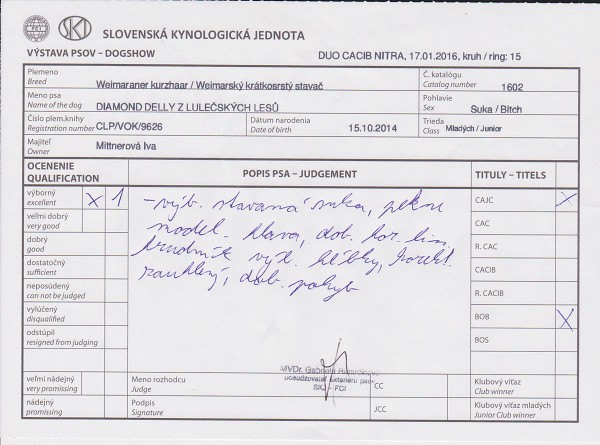 SKJ SLOVENSKÁ KYNOLOGICKÁ JEDNOTA
VÝSTAVA PSOV – DOGSHOW DUO CACIB NITRA, 17.01.2016, kruh / ring: 15
Plemeno
Breed Weimaraner kurzhaar / Weimarský krátkosrstý stavač
Č. katalógu
Catalog number 1602
Meno psa
Name of the dog DIAMOND DELLY Z LULEČSKÝCH LESŮ
Pohlavie
Sex Suka / Bitch
Číslo plem.knihy
Registration number CLP/VOK/9626
Dátum narodenia
Date of birth 15.10.2014
Trieda
Class Mladých / Junior
Majiteľ
Owner Mittnerová Iva
OCENENIE
QUALIFICATION
POPIS PSA – JUDGEMENT
TITULY – TITELS
výborný
excellent X 1
veľmi dobrý
very good
dobrý
good
dostatočný
sufficient
neposúdený
can not be judged
vylúčený
disqualified
odstúpil
resigned from judging
veľmi nádejný
very promissing
nádejný
promissing
– výb. stavaná suka, peknu
model. hlava, dob. hor. lin.
hrudník výb. hĺbky, korekt.
zauhlený, dob. pohyb
CAJC X
CAC
R. CAC
CACIB
R. CACIB
BOB X
BOS
MVDr. Gabriela
posudzovateľ exteriéru psov
SKJ - FCI
Meno rozhodcu
Judge
CC
Klubový víťaz
Club winner
Podpis
Signature
JCC
Klubový víťaz mladých
Junior Club winner